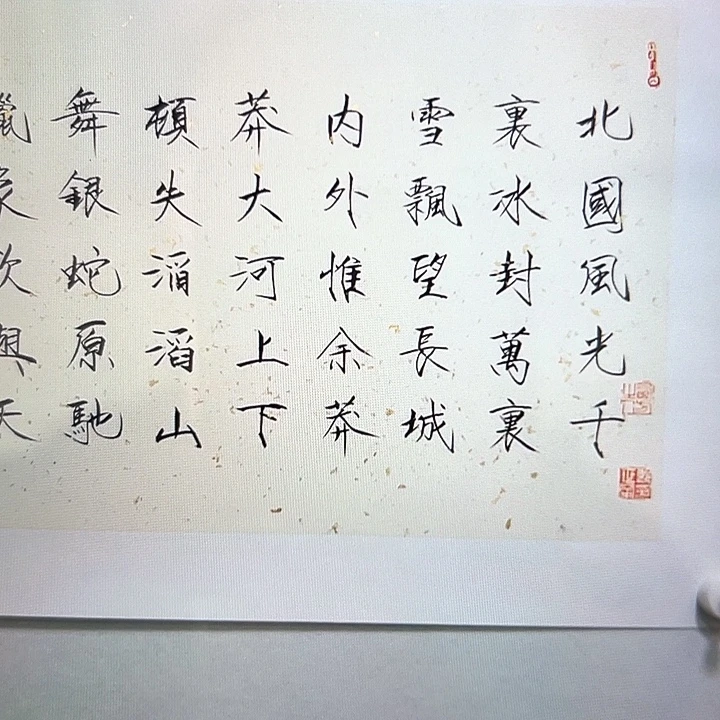 北國風光千
裏冰封萬裏
雪飄望長城
内外惟余莽
莽大河上下
頓失滔滔山
舞銀蛇原馳
蠟象欲與天